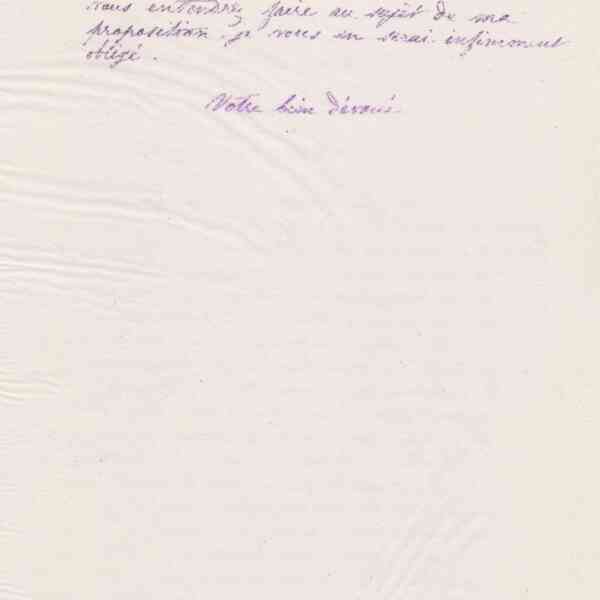 vous entendrez faire au sujet de ma
proposition, je vous en serai infiniment
obligé.
Votre bien dévoué